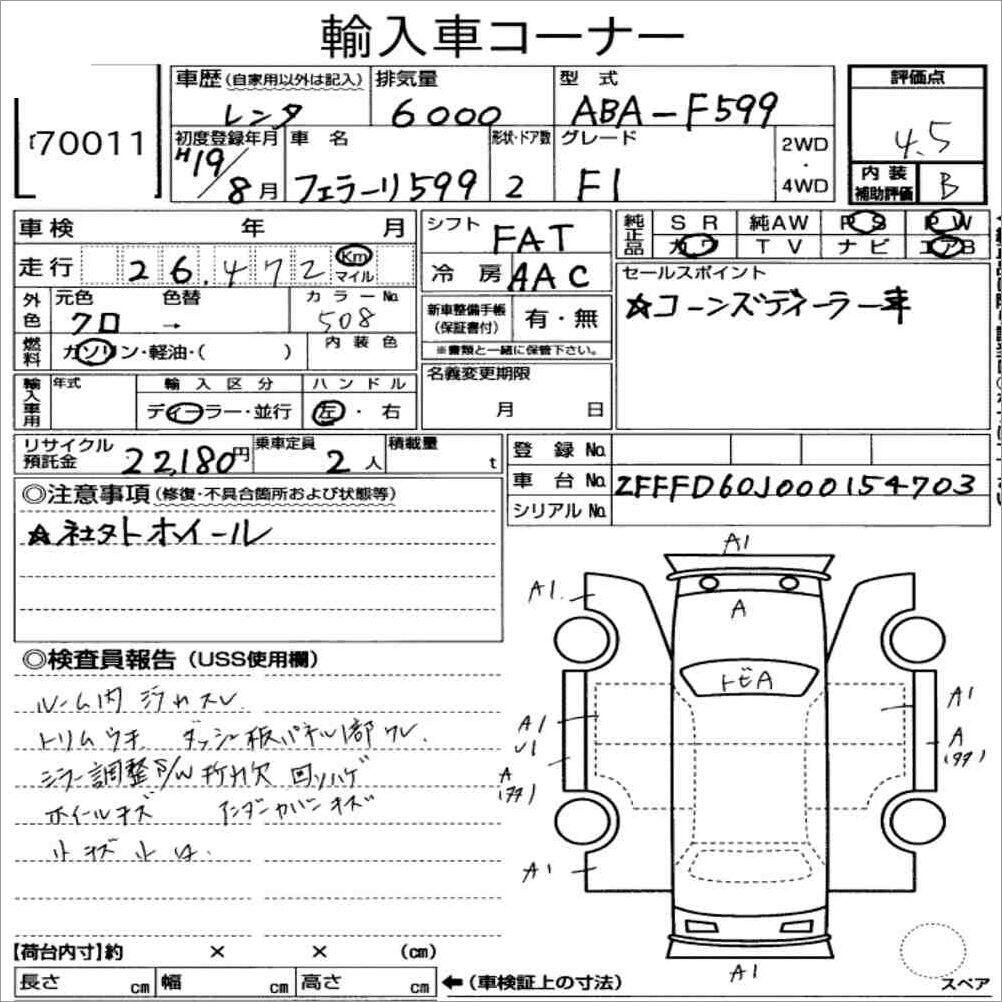 輸入車コーナー
70011
車歴(自家用以外は記入) 排気量 型 式 評価点
レンタ 6000 ABA-F599 4.5
初度登録年月 車 名 形状・ドア数 グレード 2WD ・ 4WD 内装補助評価 B
H19/8月 フェラーリ599 2 F1
車検 年 月 シフト FAT 純正品 SR 純AW PS PW
走行 26,472 Km マイル 冷房 AAC カワ TV ナビ エアB
外色 元色 色替 カラーNo. セールスポイント
クロ → 508 新車整備手帳(保証書付) 有・無 ☆コーンズディーラー車
燃料 ガソリン・軽油・( ) 内装色 ※書類と一緒に保管下さい。
輸入車用 年式 輸入区分 ハンドル 名義変更期限
ディーラー・並行 左・右 月 日
リサイクル預託金 22,180円 乗車定員 2人 積載量 t 登録No.
車台No. ZFFFD60J000154703
シリアルNo.
◎注意事項(修復・不具合箇所および状態等)
☆社外ホイール
◎検査員報告(USS使用欄)
ルーム内 汚れスレ
トリムウキ ダッシュ板パネル1部ワレ.
ミラー調整S/W折れ欠 回りハゲ
ホイールキズ アンダーカバーキズ
小キズ小凹.
A1
A1
A
トビA
A1
A1
A1
A
A
A1
A1
【荷台内寸】約 × × (cm)
長さ cm 幅 cm 高さ cm ←(車検証上の寸法) スペア